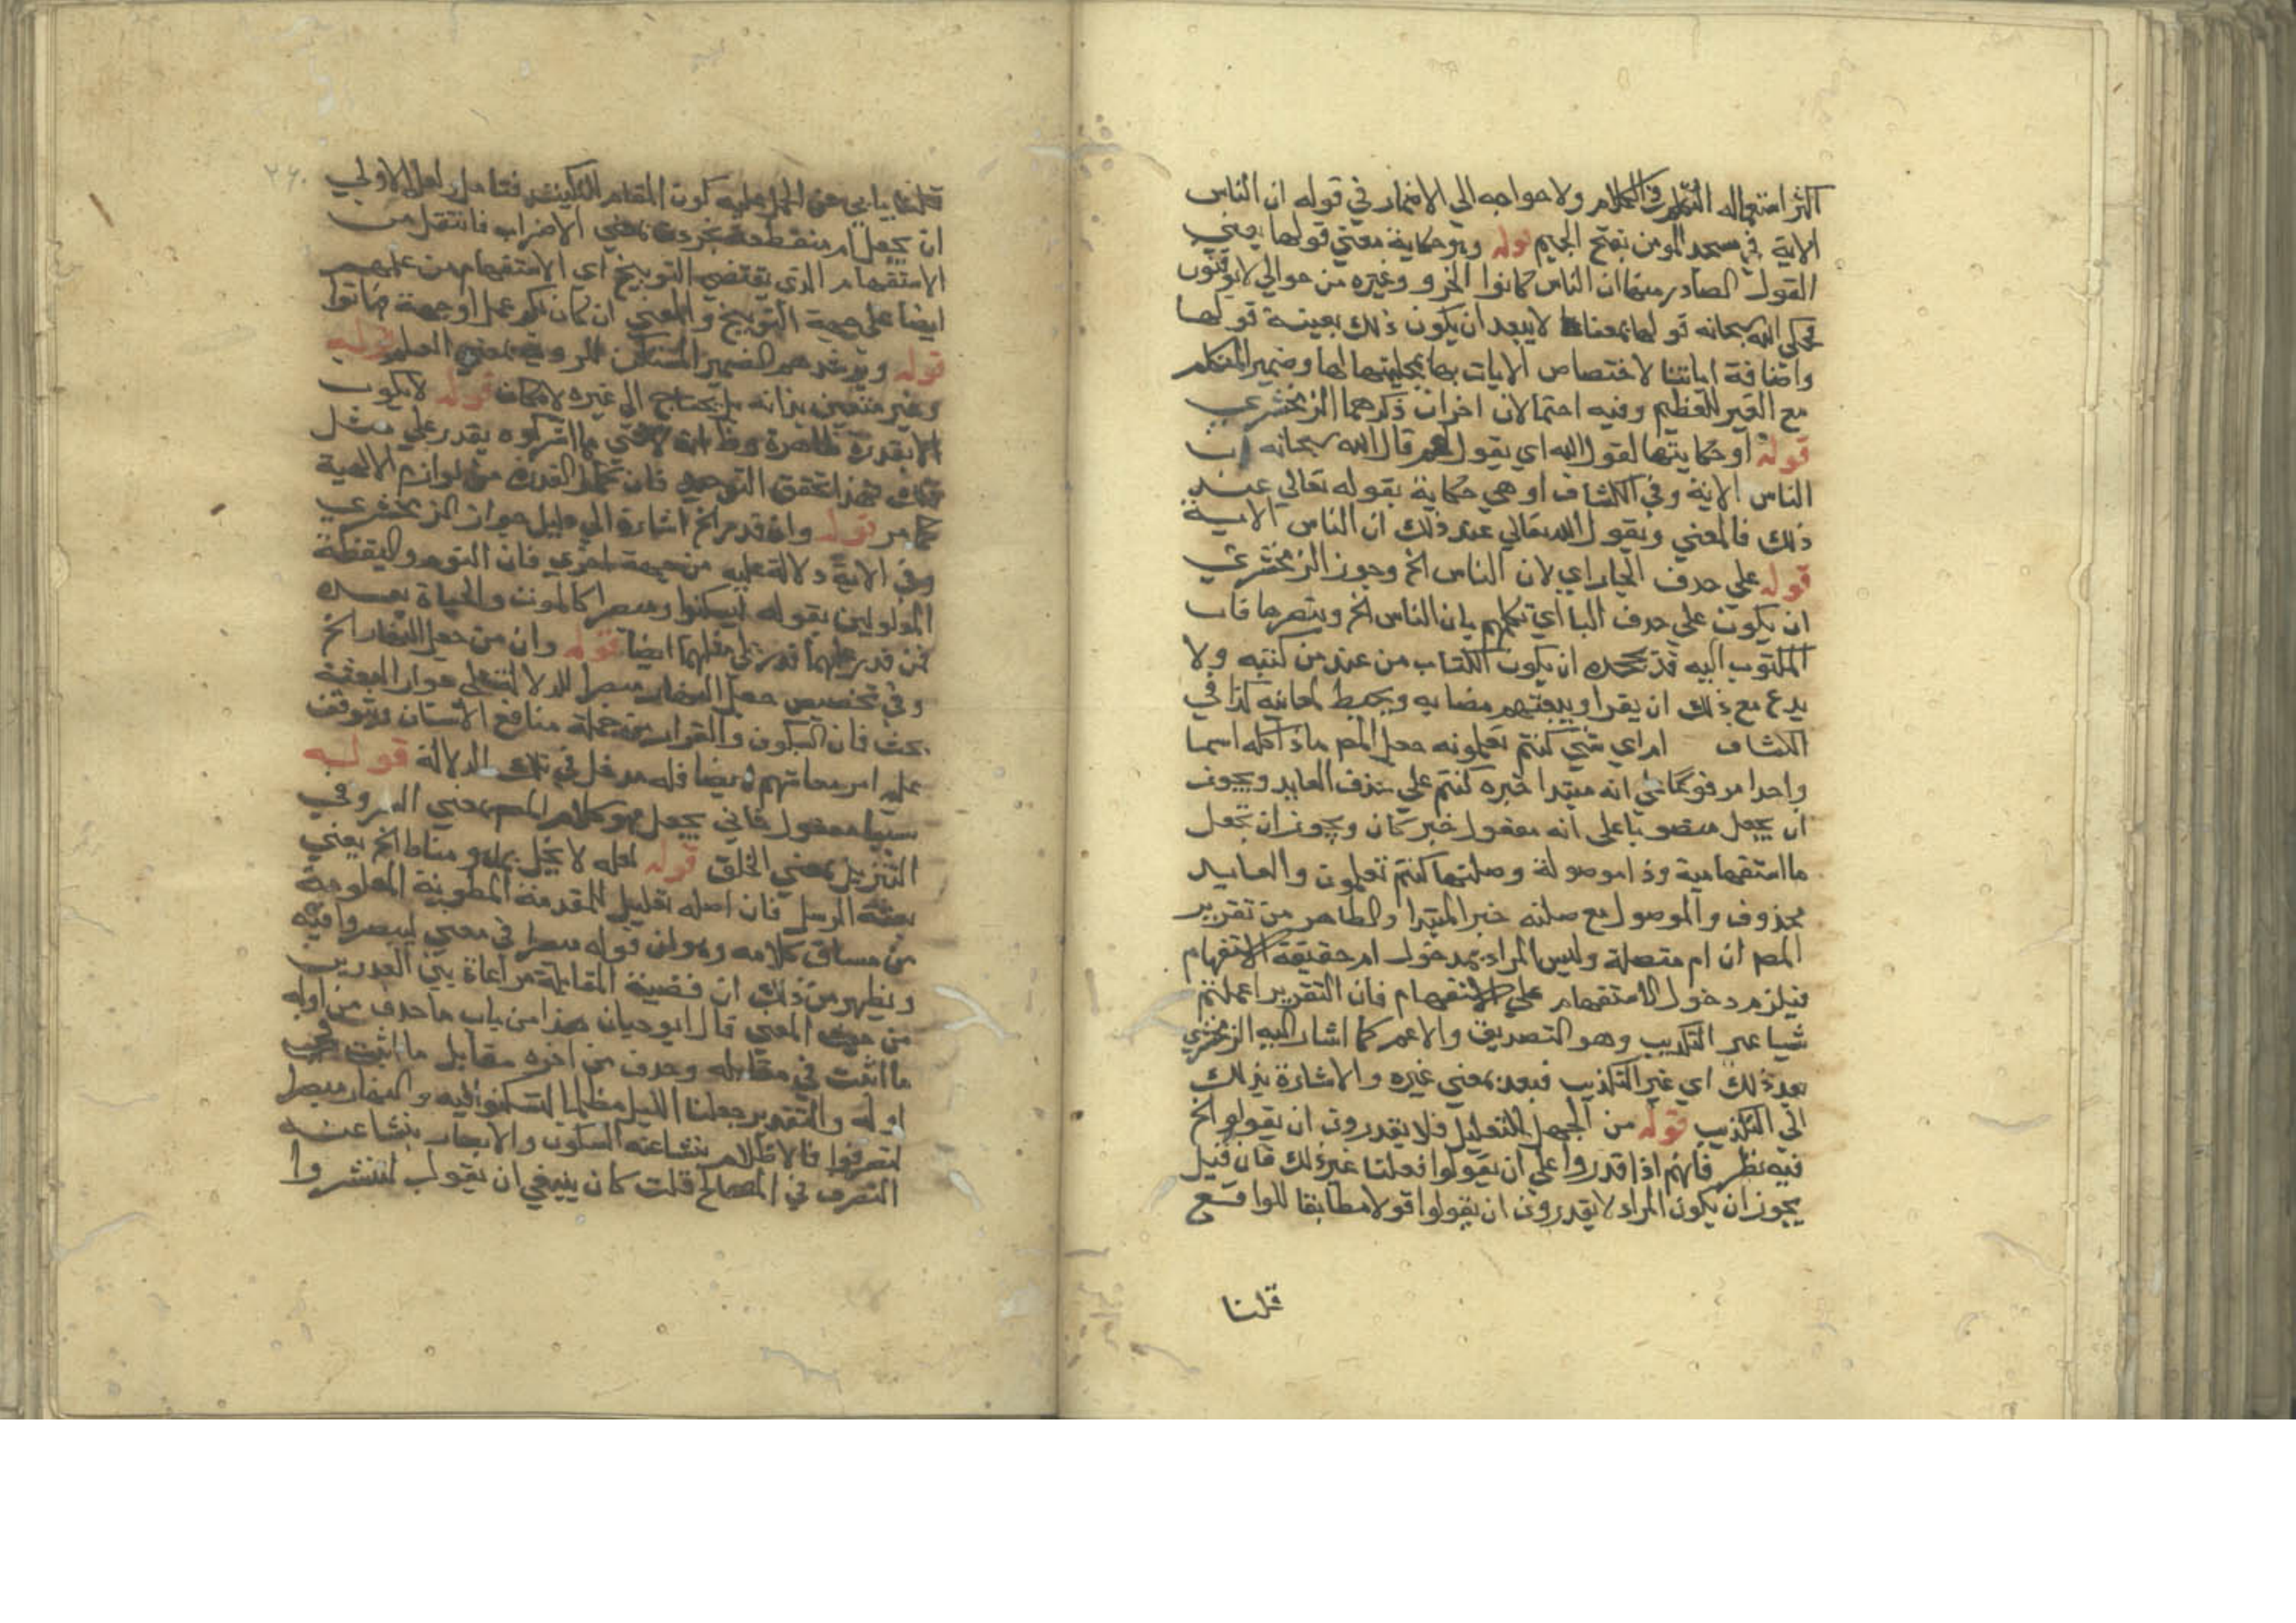 اكثر استعماله التكلم والكلام ولا حواجه الي الاضمار في قوله ان الناس
الاية في مسجد المومن بفتح الجيم قوله وهو حكاية معني قولها يعني
القول الصادر منها ان الناس كانوا الخ وغيره من حوالي لا يوقنون
فحكي الله سبحانه قولها بمعناها لا يبعد ان يكون ذلك بعينه قولها
واضافة اياتنا لاختصاص الايات بها وضمير المتكلم
مع الغير للتعظيم وفيه احتمالان اخران ذكرهما الزمخشري
قوله او حكايتها لقول الله اي يقول لهم قال الله سبحانه ان
الناس الاية وفي الكشاف او هي حكاية بقوله تعالي عند
ذلك فالمعني ويقول الله تعالي عند ذلك ان الناس الاية
قوله علي حدف الجار اي لان الناس الخ وجوز الزمخشري
ان يكون علي حدف البا اي تكلمهم بان الناس الخ وبتصرها فان
المكتوب اليه قد يجحده ان يكون الكتاب من عند من كتبه ولا
يدع مع ذلك ان يقراه ويتفهم مضامينه ويحيط بمعانيه كذا في
الكشاف ام اي شي كنتم تعملونه جعل المص ماذا كله اسما
واحدا مرفوعا علي انه مبتدا خبره كنتم علي حذف العايد ويجوز
ان يجعل منصوبا علي انه مفعول خبر كان ويجوز ان تجعل
ما استفهامية وذا موصولة وصلتها كنتم تعملون والعايد
محذوف والموصول مع صلته خبر المبتدا والظاهر من تقرير
المص ان ام متصلة وليس المراد بمدخول ام حقيقة الاستفهام
فيلزم دخول الاستفهام علي الاستفهام فان التقرير اعملتم
شيا غير التكذيب وهو التصديق والاعم كما اشار اليه الزمخشري
بعد ذلك اي غير التكذيب فبعد بمعني غيره والاشارة بذلك
الي التكذيب قوله من الجهل للتعليل فلا يقدرون ان يقولوا الخ
فيه نظر فانهم اذا قدروا علي ان يقولوا فعلنا غير ذلك فان قيل
يجوز ان يكون المراد لا يقدرون ان يقولوا قولا مطابقا للواقع
قلنا
٢٦٠
قلنا يابي عن الحمل عليه كون المقام للتبكيت فتامل ولعل الاولي
ان يجعل ام منقطعة مجردة بمعني الاضراب فانتقل من
الاستفهام الذي يقتضي التوبيخ اي الاستفهام عن عملهم
ايضا علي جهة التوبيخ والمعني ان كان لكم عمل او حجة فهاتوا
قوله ويرشدهم الضمير المستكن للروية بمعني العلم قوله
وغير متعين بذاته بل يحتاج الي غيره لامكانه قوله لا يكون
الا بقدرة قاهرة يقدر علي مثل
ذلك فهذا تحقق التوحيد فان كمال القدرة من لوازم الالهية
كما مر قوله وان قدر الخ اشارة الي دليل جواز الحشر
وفي الاية دلالة عليه من جهة اخري فان النوم واليقظة
المدلولين بقوله ليسكنوا ومبصرا كالموت والحياة بعده
فمن قدر عليهما قدر علي مثلهما ايضا قوله وان من جعل النهار الخ
وفي تخصيص جعل النهار مبصرا للدلالة علي جواز البعثة
بحث فان السكون والقرار من جملة منافع الانسان ويتوقف
عليه امر معاشهم ايضا فله مدخل في تلك الدلالة قوله
سببا مفعول ثاني يجعل وهو كلام المص بمعني وفي
التنزيل بمعني الخلق قوله لعله لا يخل بما هو مناط الخ يعني
بعثة الرسل فان اصله تعليل للمقدمة المطوية المعلومة
من مساق كلامه وهو ان قوله مبصرا في معني ليبصروا فيه
ويظهر من ذلك ان قضية المقابلة مراعاة بين القدرين
من حيث المعني قال ابو حيان هذا من باب ما حدف من اوله
ما اثبت في مقابله وحدف من اخره مقابل ما اثبت في
اوله والتقدير جعلنا الليل مظلما لتسكنوا فيه والنهار مبصرا
لتصرفوا فالاظلام ينشا عنه السكون والابصار ينشا عنه
التصرف في المصالح قلت كان ينبغي ان يقول لتنتشروا